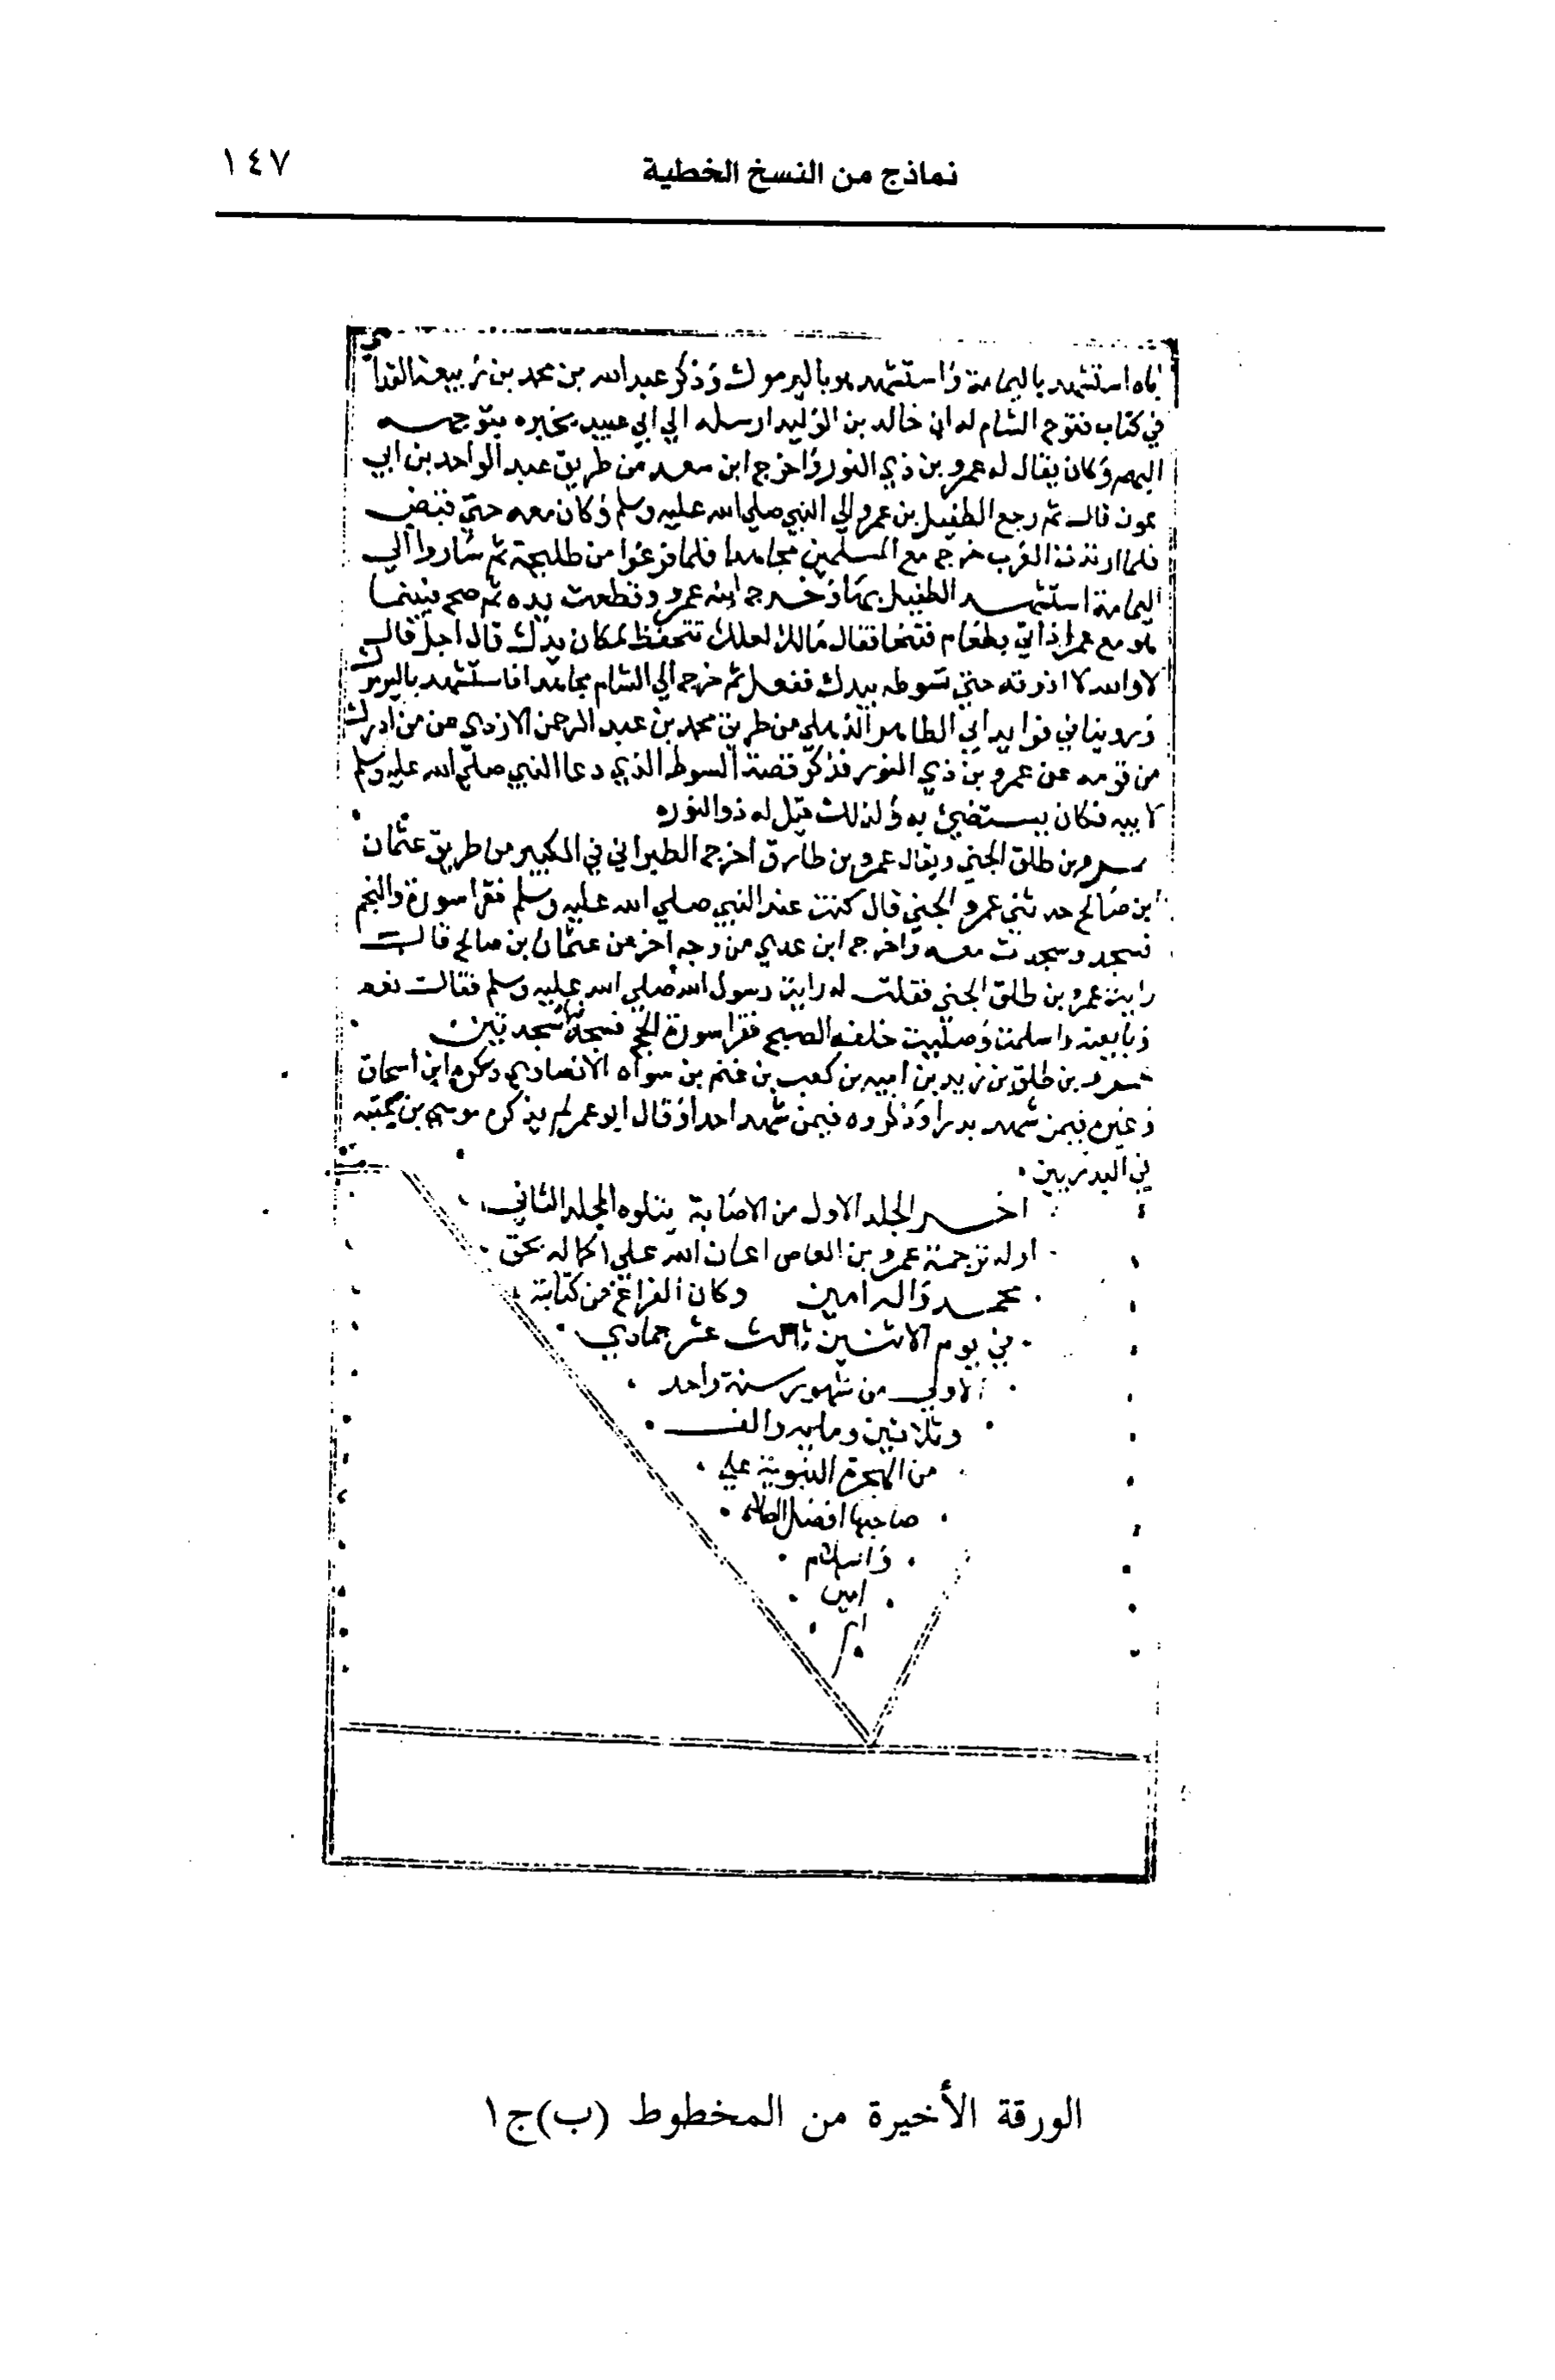 نماذج من النسخ الخطية
١٤٧
اباه استشهد باليمامة واستشهد هو باليرموك وذكر عبد الله بن محمد بن ربيعة القدامي
في كتاب فتوح الشام له ان خالد بن الوليد ارسله الي ابي عبيد يخبره بتوجهه
اليهم وكان يقال له عمرو بن ذي النور واخرج ابن سعد من طريق عبد الواحد بن ابي
عون قال ثم رجع الطفيل بن عمرو الي النبي صلي الله عليه وسلم وكان معه حتي قبض
فلما ارتدت العرب خرج مع المسلمين مجاهدا فلما فرغوا من طليحة ثم ساروا الي
اليمامة استشهد الطفيل بها وخرج ابنه عمرو وقطعت يده ثم صح فبينما
هو مع عمر اذ اتي بطعام فتنحا فقال مالك لعلك تتحفظ لمكان يدك قال اجل قال
لا والله لا اذوقه حتي تسوطه بيدك ففعل ثم خرج الي الشام مجاهدا فاستشهد باليرموك
وروينا في فوايد ابي الطاهر الذهلي من طريق محمد بن عبد الرحمن الازدي عن من ادرك
من قومه عن عمرو بن ذي النور فذكر قصة السوط الذي دعا النبي صلي الله عليه وسلم
لابيه فكان يستضيئ به ولذلك قيل له ذو النوره
عمرو بن طلق الجني ويقال عمرو بن طارق اخرج الطبراني في الكبير من طريق عثمان
ابن صالح حدثني عمرو الجني قال كنت عند النبي صلي الله عليه وسلم فقرا سورة والنجم
فسجد وسجدت معه واخرج ابن عدي من وجه اخر عن عثمان بن صالح قال
رايت عمرو بن طلق الجني فقلت له رايت رسول الله صلي الله عليه وسلم فقال نعم
وبايعته واسلمت وصليت خلفه الصبح فقرا سورة الحج فسجد فيها سجدتين
عمرو بن طلق بن زيد بن اميه بن كعب بن غنم بن سواه الانصاري ذكره ابن اسحاق
وغيره فيمن شهد بدرا وذكروه فيمن شهد احدا وقال ابو عمر لم يذكره موسي بن عقبه
في البدريين .
اخر الجلد الاول من الاصابة يتلوه المجلد الثاني
اوله ترجمة عمرو بن العاص اعان الله علي اكماله بحق
محمد واله امين وكان الفراغ من كتابة
في يوم الاثنين ثالث عشر جمادي
الاولي من شهور سنة واحد
وثلاثين ومايه والف
من الهجرة النبوية علي
صاحبها افضل الصلاة
والسلام
امين
الورقة الأخيرة من المخطوط (ب) ج ١